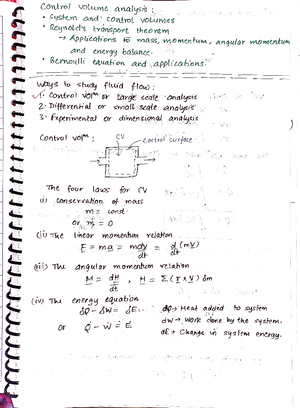 Control volume analysis :
• System and control volumes
• Reynold's transport theorem
→ Applications to mass, momentum, angular momentum
and energy balance.
• Bernoulli equation and applications.
Ways to study fluid flow :
1. Control volᵐ or large scale analysis
2. Differential or small scale analysis
3. Experimental or dimensional analysis
Control volᵐ :
CV
Control surface
The four laws for CV
(i) conservation of mass
m = const.
or ṁ = 0
(ii) The linear momentum relation
F = ma = m dv/dt = d/dt (mV)
(iii) The angular momentum relation
M = dH/dt , H = Σ (r × V) δm
(iv) The energy equation
δQ - δW = δE
dQ → Heat added to system
dW → Work done by the system.
dE → Change in system energy.
or Q̇ - Ẇ = Ė